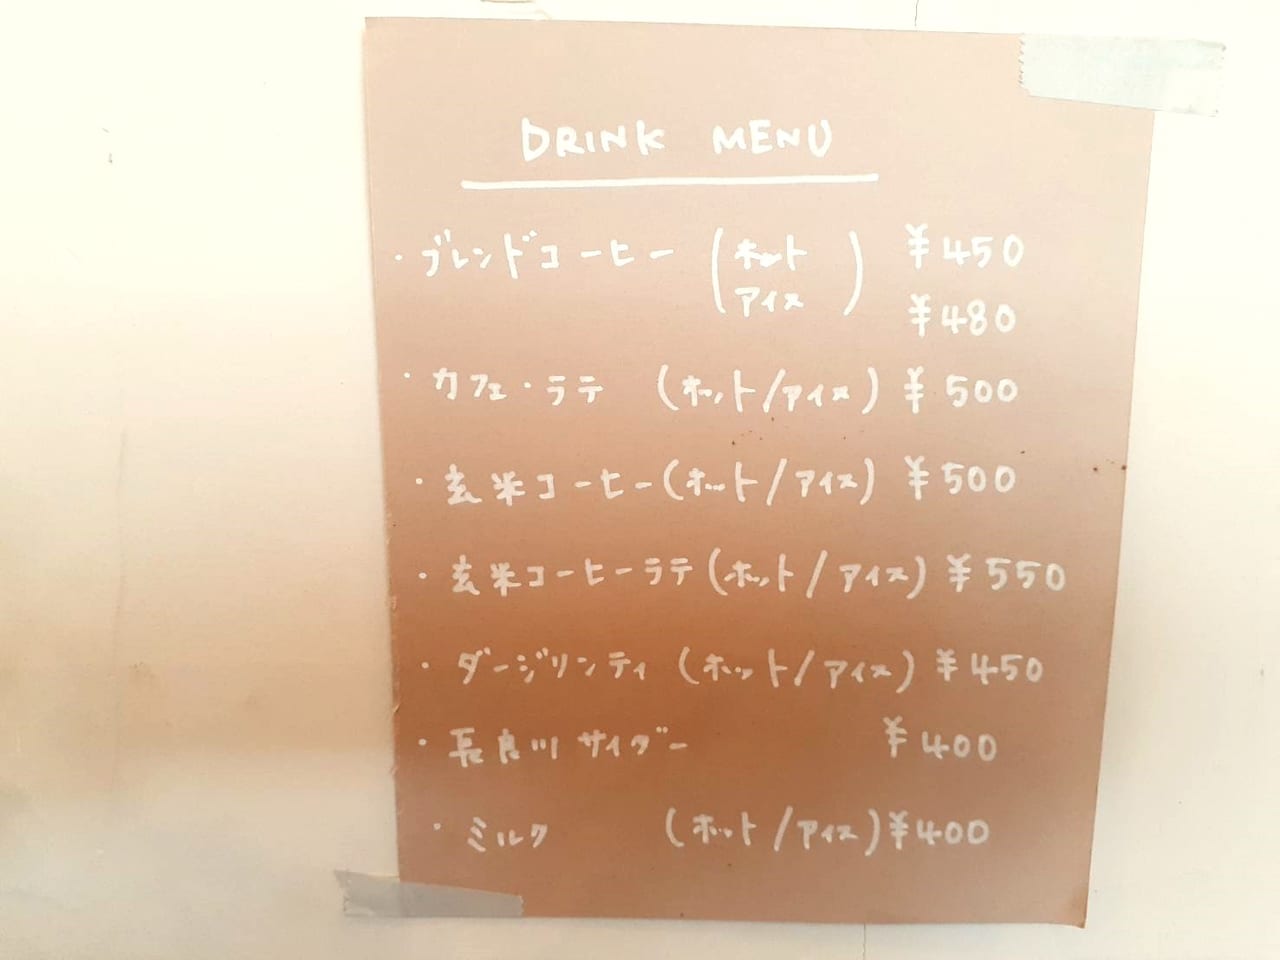 DRINK MENU
・ブレンドコーヒー (ホット ¥450
アイス) ¥480
・カフェ・ラテ (ホット/アイス) ¥500
・玄米コーヒー(ホット/アイス) ¥500
・玄米コーヒーラテ(ホット/アイス) ¥550
・ダージリンティ (ホット/アイス) ¥450
・長良川サイダー ¥400
・ミルク (ホット/アイス)¥400